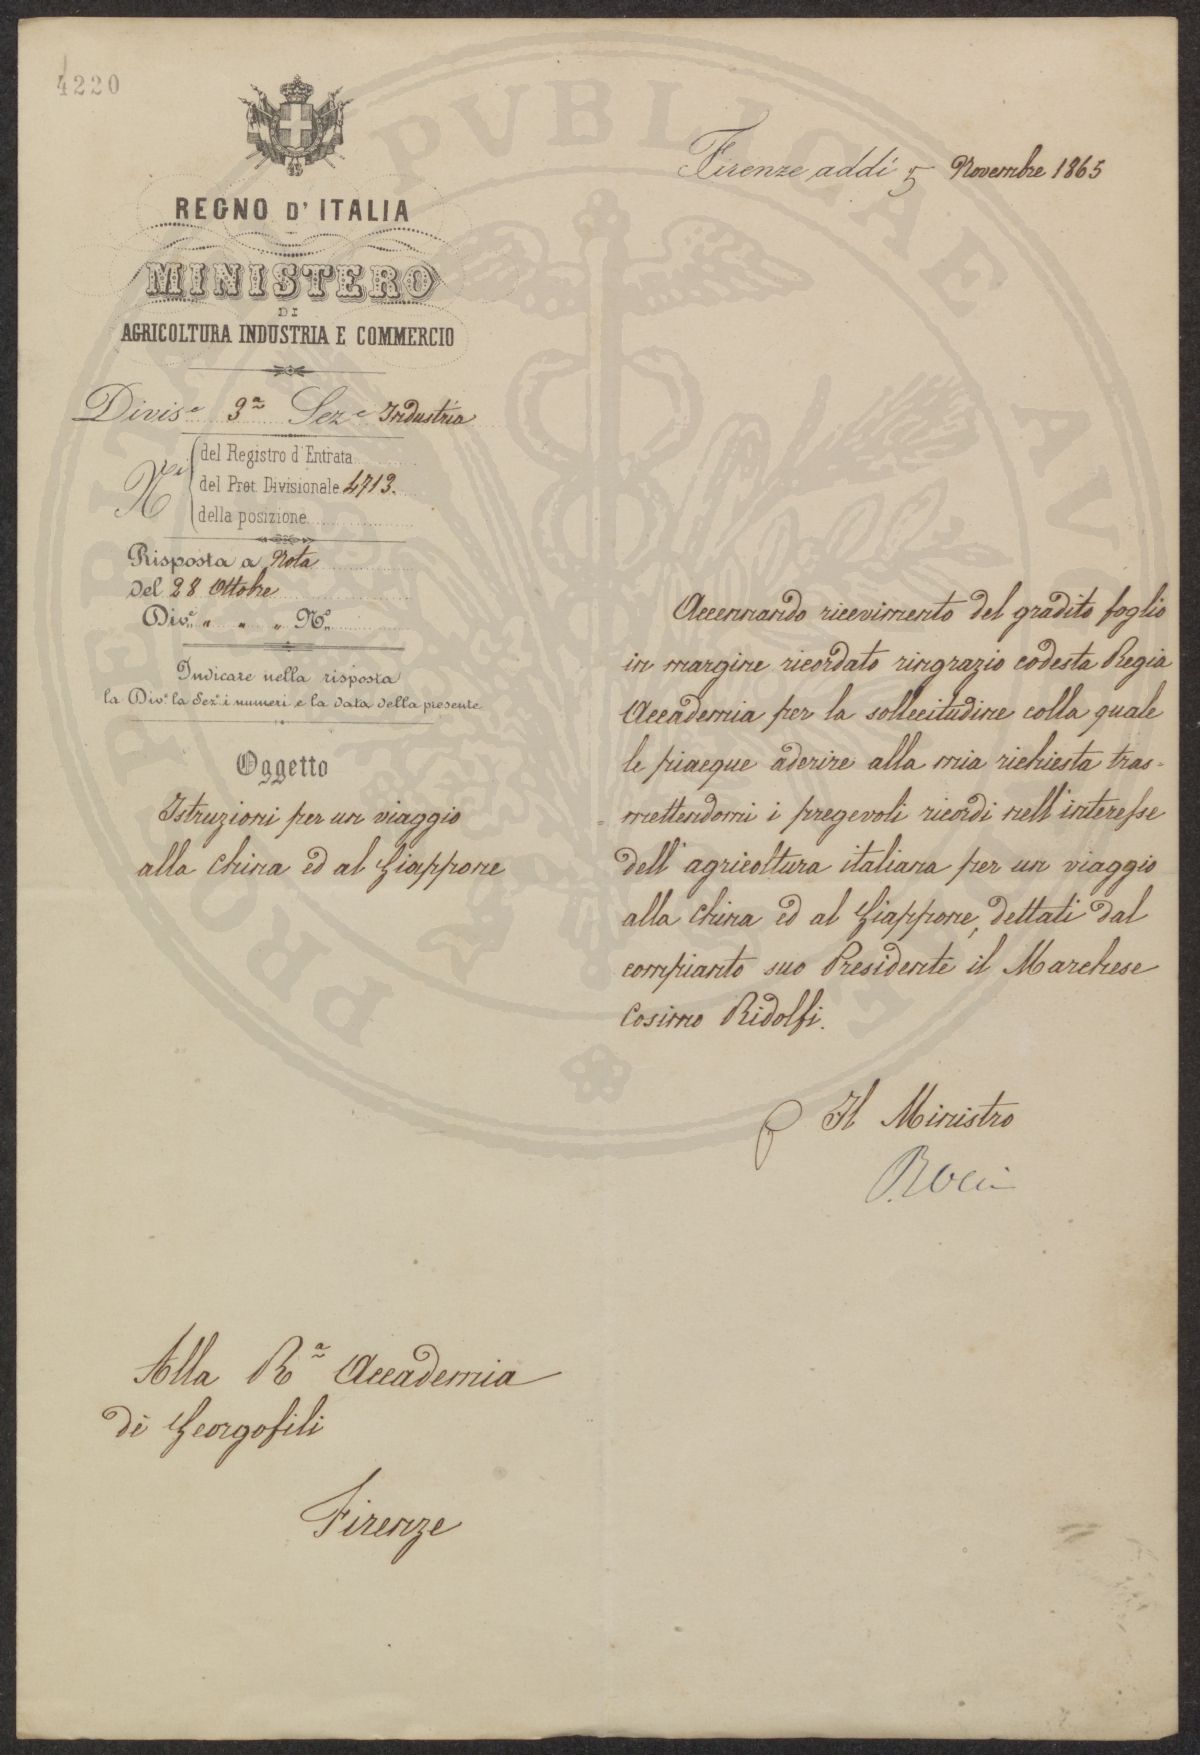 4220
REGNO D' ITALIA
MINISTERO
DI
AGRICOLTURA INDUSTRIA E COMMERCIO
Divis.e 3.a Sez.e Industria
N.i
del Registro d'Entrata
del Prot. Divisionale 4713.
della posizione
Risposta a Nota
del 28 Ottobre
Div.e " " " N.o
Indicare nella risposta
la Div.e la Sez.e i numeri e la data della presente
Oggetto
Istruzioni per un viaggio
alla China ed al Giappone
Firenze addì 5 Novembre 1865
Accennando ricevimento del gradito foglio
in margine ricordato ringrazio codesta Regia
Accademia per la sollecitudine colla quale
le piacque aderire alla mia richiesta tras-
mettendomi i pregevoli ricordi nell'interesse
dell'agricoltura italiana per un viaggio
alla China ed al Giappone, dettati dal
compianto suo Presidente il Marchese
Cosimo Ridolfi.
Il Ministro
Alla R.a Accademia
dè Georgofili
Firenze
PVBLICAE